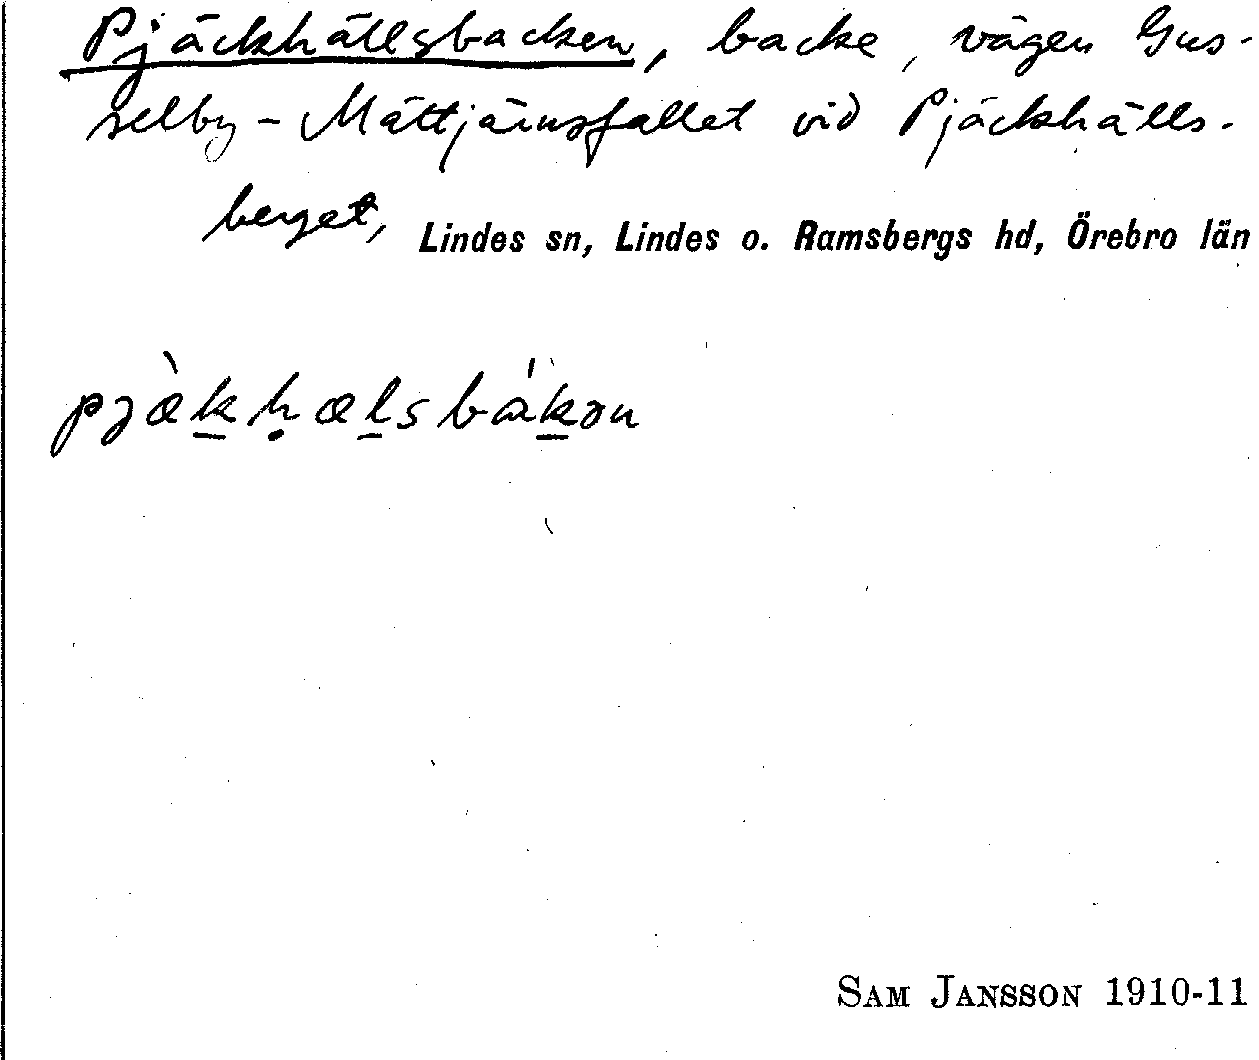 Pjäckhällsbacken, backe, vägen Gus-
selby - Mättjärnsfallet vid Pjäckhälls-
berget, Lindes sn, Lindes o. Ramsbergs hd, Örebro län
pjæ̀k̲ḥæl̲sbák̲ən
SAM JANSSON 1910-11